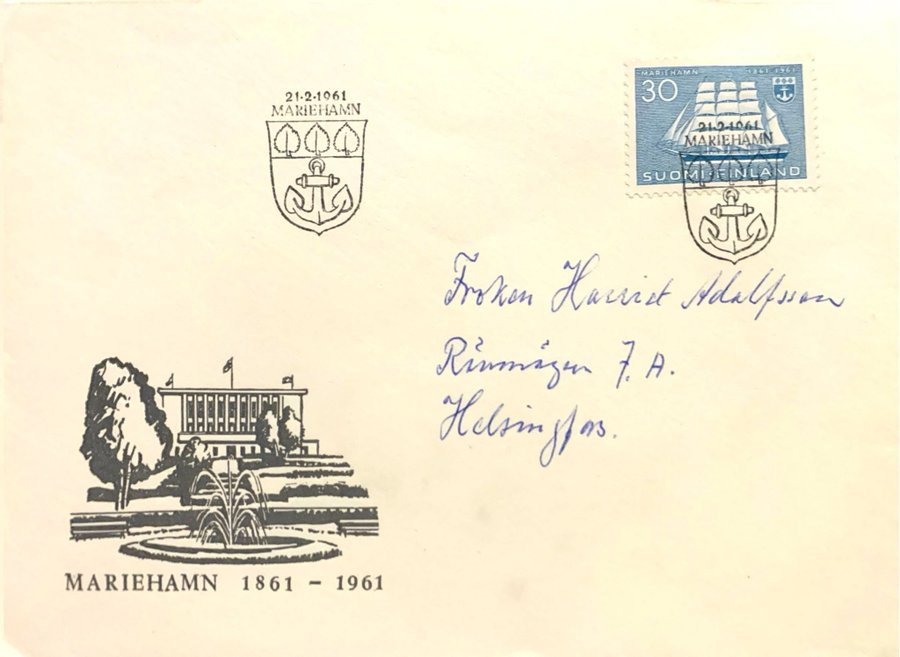 21·2·1961
MARIEHAMN
MARIEHAMN 1861-1961
30
21·2·1961
MARIEHAMN
SUOMI·FINLAND
Fröken Harriet Adolfsson
7. A.
Helsingfors.
MARIEHAMN 1861 - 1961